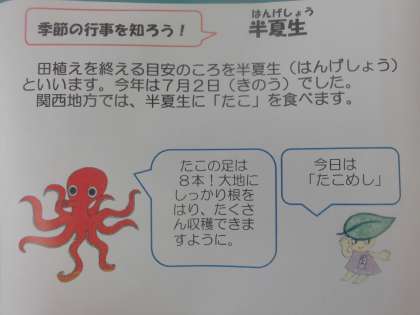 季節の行事を知ろう！
はんげしょう
半夏生
田植えを終える目安のころを半夏生（はんげしょう）
といいます。今年は７月２日（きのう）でした。
関西地方では、半夏生に「たこ」を食べます。
たこの足は
８本！大地に
しっかり根を
はり、たくさ
ん収穫できま
すように。
今日は
「たこめし」